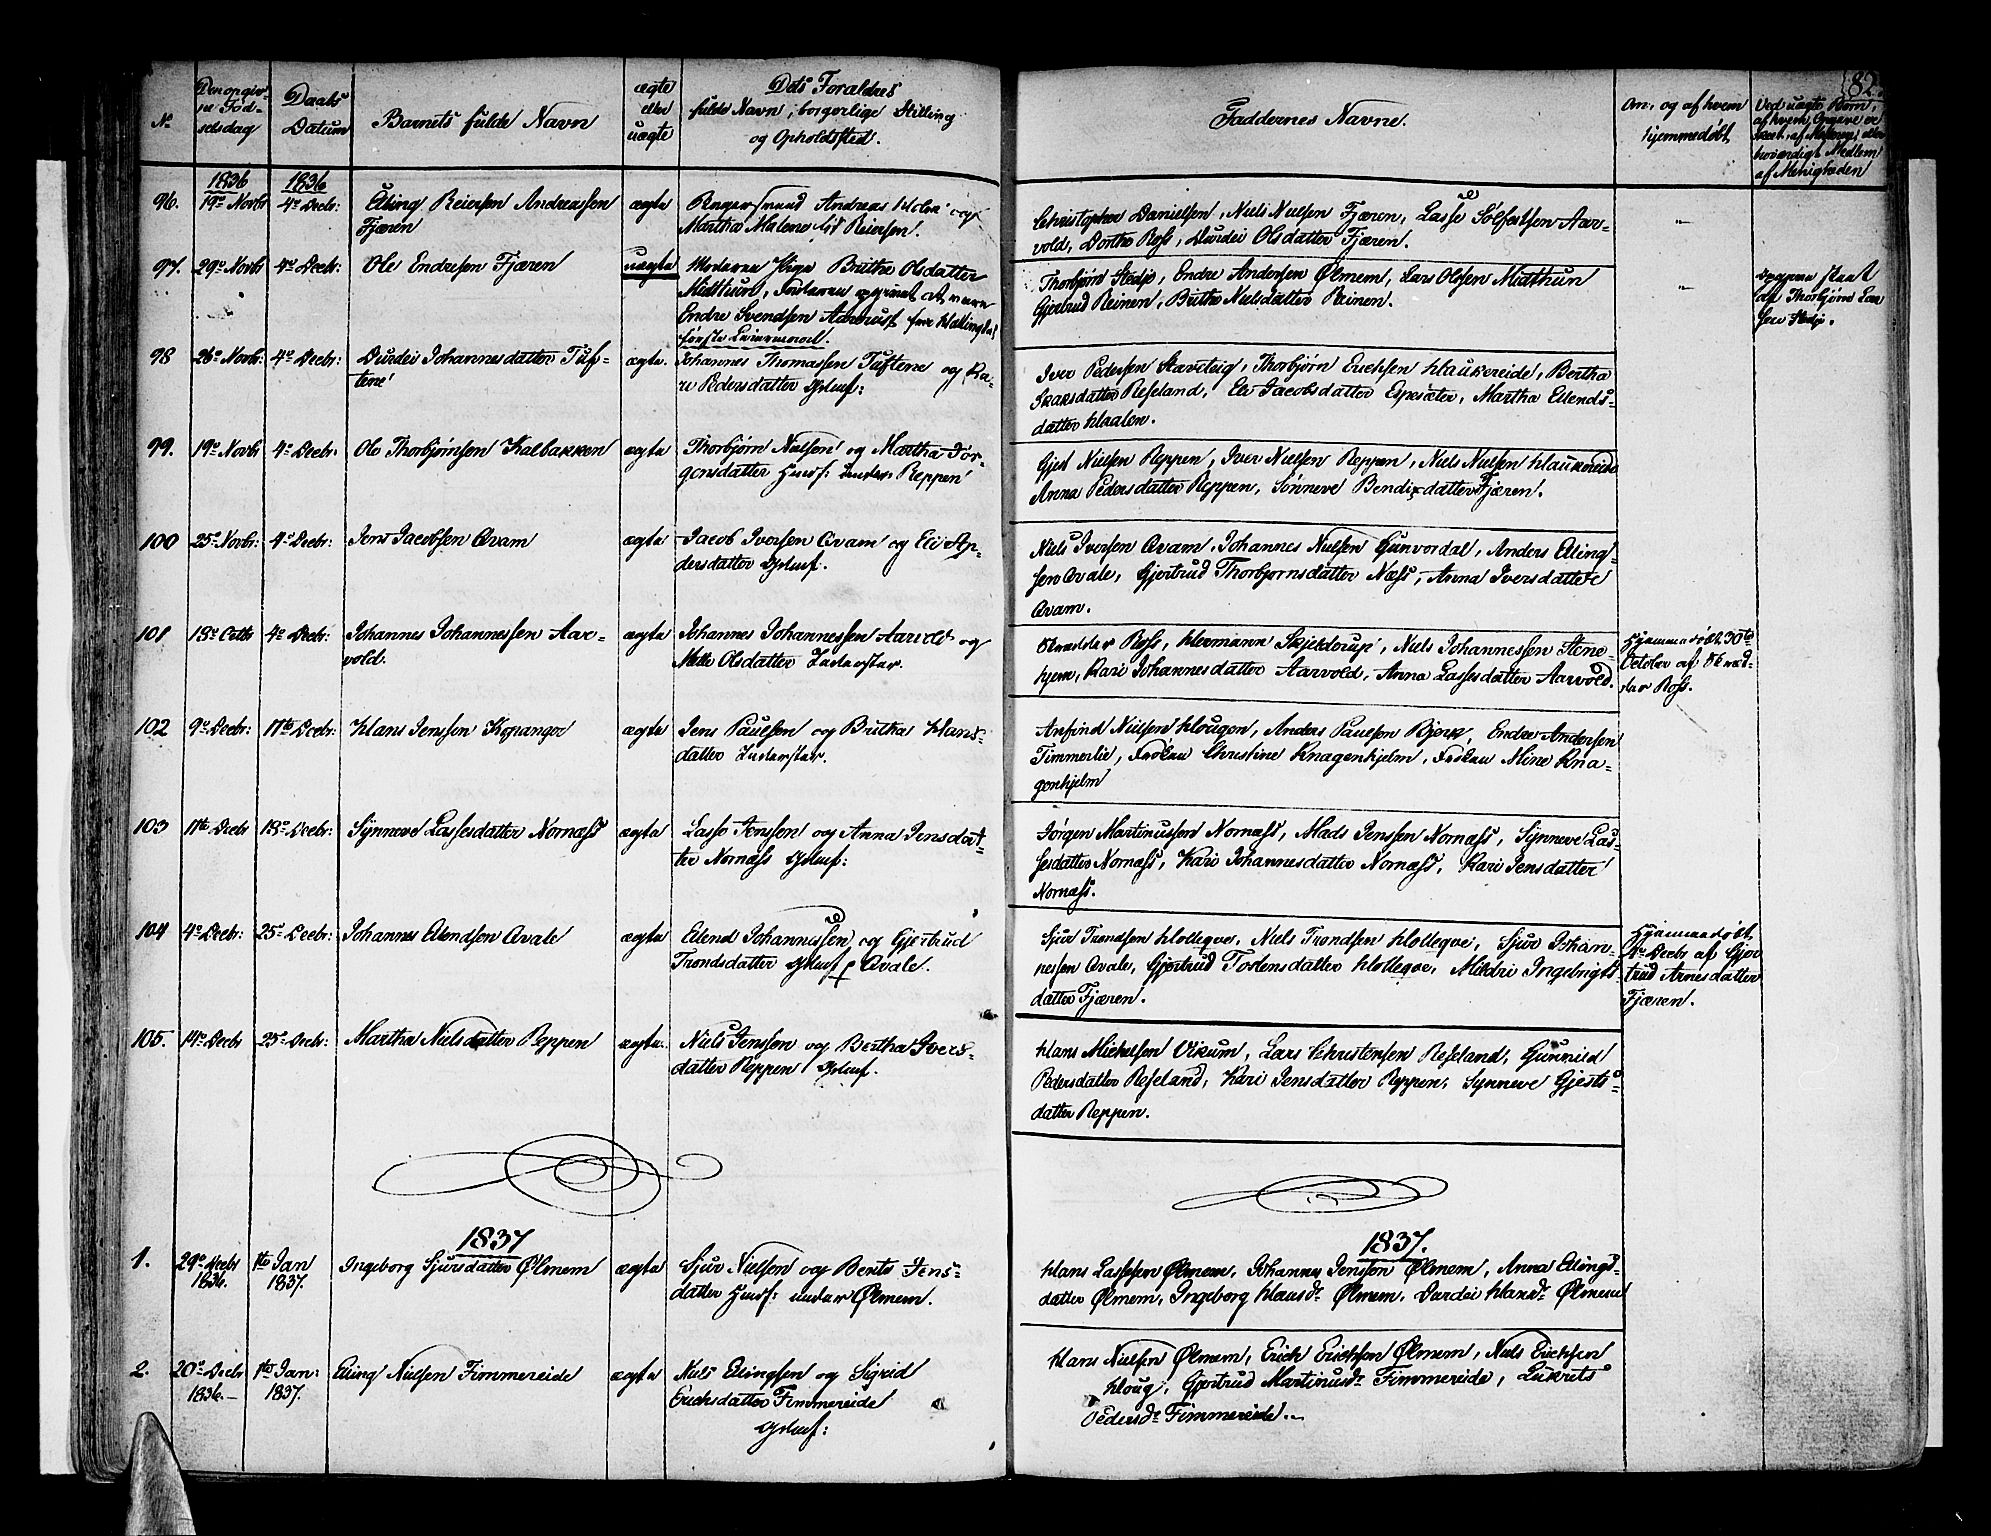 82.
No
Den opgiv-
ne Fød-
selsdag
Daabs
Datum
Barnets fulde Navn
ægte
eller
uægte
Dets Forældres
fulde Navn, borgerlige Stilling
og Opholdssted.
Faddernes Navne.
Om, og af hvem
hjemmedøbt
Ved uægte Børn,
af hvem Opgave er
skeet, af Moderen eller
troværdigt Medlem
af Menigheden
1836
1836
96.
19de Novbr
4de Decbr:
Elling Reiersen Andreassen
Fjæren
ægte
Andreas
Martha Malene Reiersen.
Christopher Danielsen, Niels Nielsen Fjæren, Lasse Solfestsen Aar-
vold, Dorthe Ross, Durdei Olsdatter Fjæren.
"
97.
29de Novbr
4de Decbr:
Ole Endresen Fjæren
uægte
Moderen Pige Brithe Olsdatter
Midttun, Faderen opgivet at være
Endre Svendsen fra Hallingdal
første Leiermaal.
Thorbjørn Stedje, Endre Andersen Ølmem, Lars Olsen Midthun
Gjertrud Reinen, Brithe Nielsdatter Reinen.
"
Opgaven skeet
af Thorbjørn Las-
sen Stedje.
98
26de Novbr:
4de Decbr:
Durdei Johannesdatter Tuf-
tene
ægte.
Johannes Thomassen Tuftene og Ka-
ri Pedersdatter Gdmf:
Iver Pedersen Stavelsig, Thorbjørn Erichsen Haukereide, Bertha
Isaksdatter Reseland, Eli Jacobsdatter Espesæter, Martha Ellends-
datter Haalen.
99.
19de Novbr
4de Decbr:
Ole Thorbjørnsen Kalbakken
ægte
Thorbjørn Nielsen og Martha Jør-
gensdatter Husf: under Reppen
Gjest Nielsen Reppen, Iver Nielsen Reppen, Niels Nielsen Haukereide
Anna Pedersdatter Reppen, Sønneve Bendixdatter Fjæren.
100
25de Novbr:
4de Decbr:
Jens Jacobsen Qvam
ægte
Jacob Iversen Qvam og Eli An-
dersdatter Gdmf.
Niels Iversen Qvam, Johannes Nielsen Gunvordal, Anders Elling-
sen Qvale, Gjertrud Thorbjørnsdatter Næss, Anna Iversdatter
Qvam.
101
13de Octbr
4de Decbr:
Johannes Johannessen Aar-
vold.
ægte
Johannes Johannessen Aarvold og
Mette Olsdatter Inderster.
Skrædder Ross, Hermann Skjeldrup, Niels Johannessen Stene-
hjem, Kari Johannesdatter Aarvold, Anna Lassesdatter Aarvold.
Hjemmedøbt 30te
October af Skræd-
der Ross.
102
9de Decbr:
17te Decbr:
Hans Jenssen Kopanger
ægte
Jens Paulsen og Brithe Hans-
datter Inderster.
Anfind Nielsen Hougen, Anders Paulsen Bjerk, Endre Andersen
Timmerlie, Frøken Christine Knagenhjelm, Frøken Mine Kna-
genhjelm
103
11te Decbr
18de Decbr:
Synneve Lassesdatter Nornæss
ægte
Lasse Jenssen og Anna Jensdat-
ter Nornæss Gdmf:
Jørgen Martinussen Nornæss, Mads Jenssen Nornæss, Synneve Las-
sesdatter Nornæss, Kari Johannesdatter Nornæss, Kari Jensdatter
Nornæss.
104
4de Decbr:
25de Decbr:
Johannes Ellendsen Qvale
ægte
Ellend Johannessen og Gjertrud
Trondsdatter Gdmf Qvale.
Sjur Trondsen Holleqve, Niels Trondsen Holleqve, Sjur Johan-
nessen Qvale, Gjertrud Tostensdatter Holleqve, Mildri Ingebrigts-
datter Fjæren.
Hjemmedøbt
Decbr af Gjer-
trud Arnesdatter
Fjæren.
105.
14de Decbr
25de Decbr:
Martha Nielsdatter Reppen
ægte.
Niels Jenssen og Bertha Ivers-
datter Reppen Gdmf.
Hans Michelsen Vikum, Lars Christensen Reseland, Gunnild
Pedersdatter Reseland, Kari Jensdatter Reppen, Synneve Gjests-
datter Reppen.
1837
1837.
1.
29de Decbr
1836.
1ste Jan
1837.
Ingeborg Sjursdatter Ølmem
ægte
Sjur Nielsen og Berte Jens-
datter Husf: under Ølmem.
Hans Lassesen Ølmem, Johannes Jenssen Ølmem, Anna Ellings-
datter Ølmem, Ingeborg Hansdr Ølmem, Durdei Hansdr Ølmem
2.
20de Decbr
1836.-
1ste Jan:
1837.
Elling Nielsen Fimmereide
ægte
Niels Ellingsen og Sigrid
Erichsdatter Fimmereide
Gdmf:
Hans Nielsen Ølmem, Erich Erichsen Ølmem, Niels Erichsen
Houg, Gjertrud Martinusdr Fimmereide, Lukrets
Pedersdr Fimmereide.-